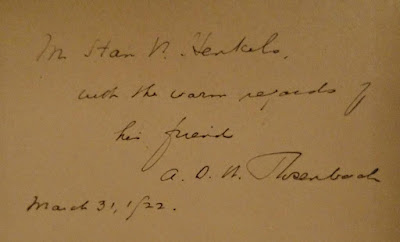 Mr Stan V. Henkels,
with the warm regards of
his friend
A. S. W. Rosenbach
March 31, 1922.